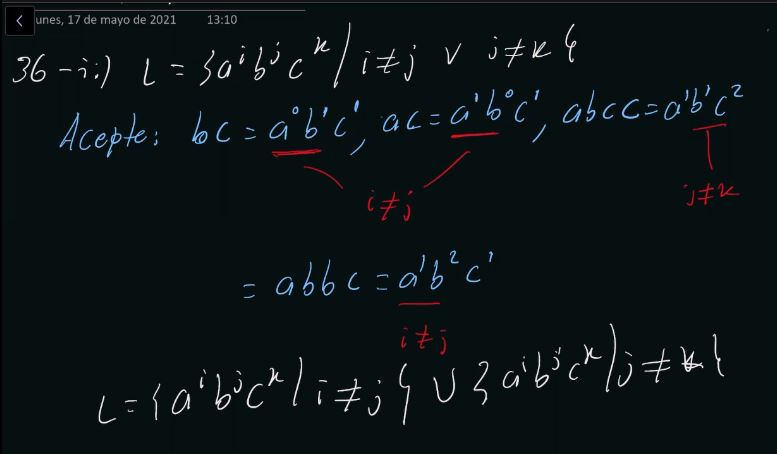 unes, 17 de mayo de 2021 13:10
36-i:) L = {aⁱbʲcᵏ / i≠j ∨ j≠k}
Acepte: bc = a⁰b¹c¹, ac = a¹b⁰c¹, abcc = a¹b¹c²
i≠j j≠k
= abbc = a¹b²c¹
i≠j
L = {aⁱbʲcᵏ / i≠j} ∪ {aⁱbʲcᵏ / j≠k}